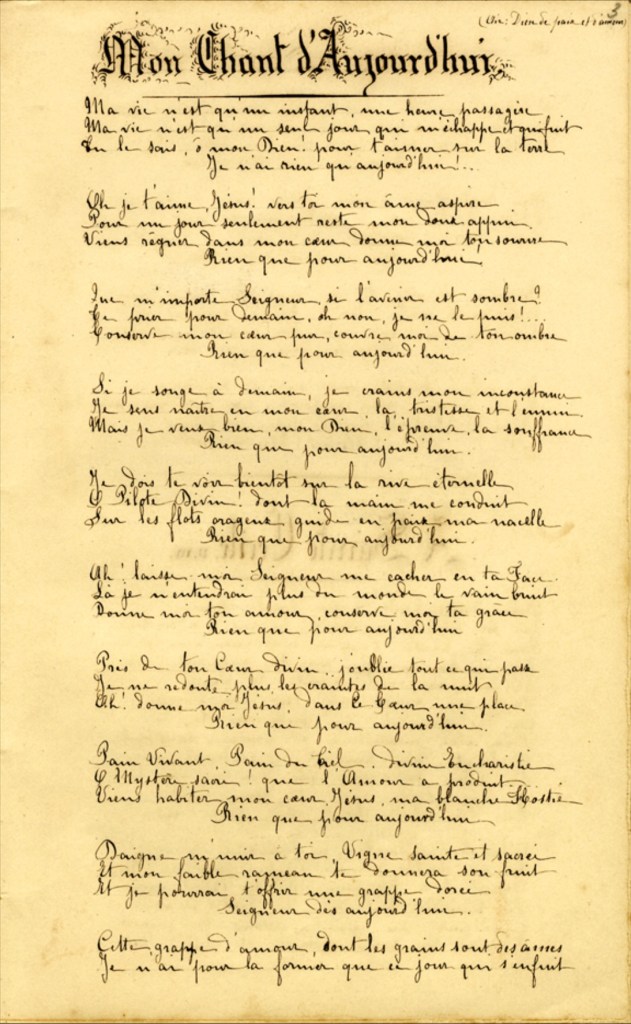 3
(Air: Dieu de paix et d'amour)
Mon Chant d'Aujourd'hui,
Ma vie n'est qu'un instant, une heure passagère
Ma vie n'est qu'un seul jour qui m'échappe et qui fuit
Tu le sais, ô mon Dieu! pour t'aimer sur la terre
Je n'ai rien qu'aujourd'hui!..
Oh je t'aime, Jésus! vers toi mon âme aspire
Pour un jour seulement reste mon doux appui
Viens régner dans mon cœur, donne moi ton sourire
Rien que pour aujourd'hui!
Que m'importe Seigneur, si l'avenir est sombre?
Te prier pour demain, oh non, je ne le puis!...
Conserve mon cœur pur, couvre moi de ton ombre
Rien que pour aujourd'hui.
Si je songe à demain, je crains mon inconstance
Je sens naître en mon cœur, la tristesse et l'ennui.
Mais je veux bien, mon Dieu, l'épreuve, la souffrance
Rien que pour aujourd'hui.
Je dois te voir bientôt sur la rive éternelle
O Pilote Divin! dont la main me conduit
Sur les flots orageux guide en paix ma nacelle
Rien que pour aujourd'hui.
Ah! laisse-moi Seigneur me cacher en ta Face
Là je n'entendrai plus du monde le vain bruit
Donne moi ton amour, conserve moi ta grâce
Rien que pour aujourd'hui
Près de ton Cœur divin, j'oublie tout ce qui passe
Je ne redoute plus les craintes de la nuit
Ah! donne moi Jésus, dans ce Cœur une place
Rien que pour aujourd'hui.
Pain Vivant, Pain du Ciel, divine Eucharistie
O Mystère sacré! que l'Amour a produit.
Viens habiter mon cœur, Jésus, ma blanche Hostie
Rien que pour aujourd'hui
Daigne m'unir à toi, Vigne sainte et sacrée
Et mon faible rameau te donnera son fruit
Et je pourrai t'offrir une grappe dorée
Seigneur dès aujourd'hui.
Cette grappe d'amour, dont les grains sont des âmes
Je n'ai pour la former que ce jour qui s'enfuit